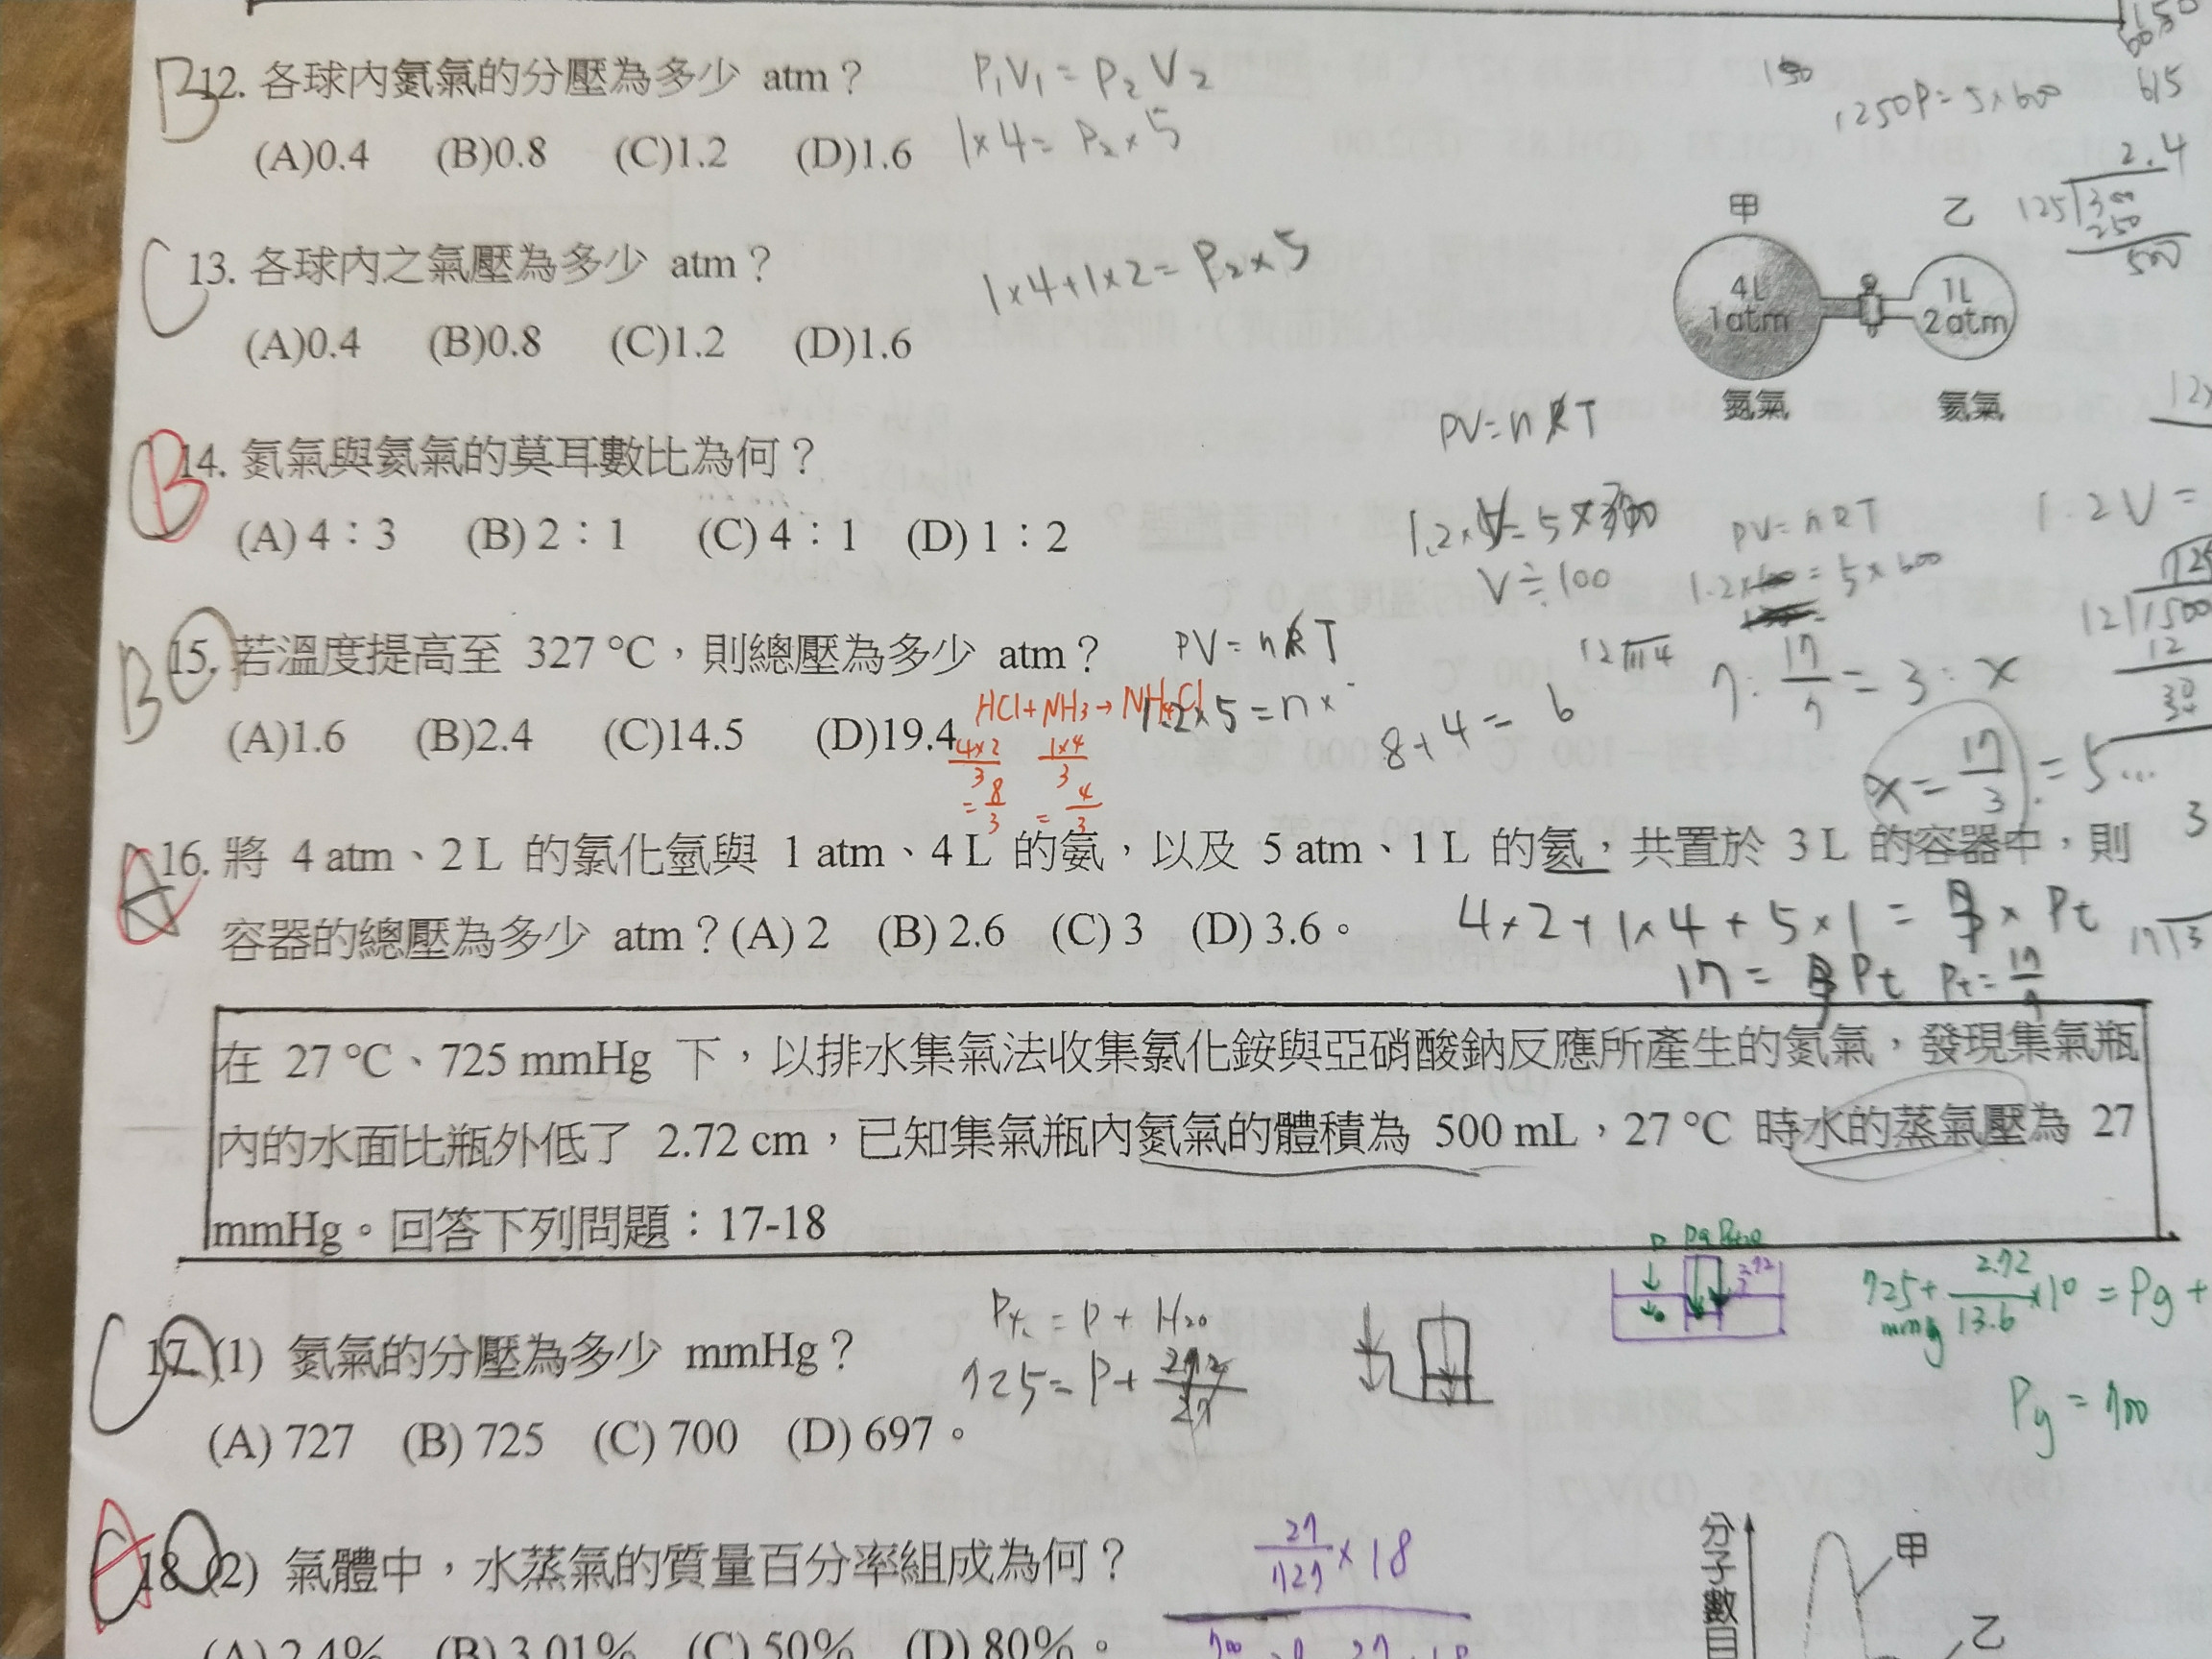 B 12. 各球內氮氣的分壓為多少 atm？
(A)0.4 (B)0.8 (C)1.2 (D)1.6
P₁V₁ = P₂V₂
1×4 = P₂×5
1250P = 5×600
615
2.4
125 300
250
500
甲 乙
4L 1L
1atm 2atm
氮氣 氦氣
C 13. 各球內之氣壓為多少 atm？
1×4+1×2 = P₂×5
(A)0.4 (B)0.8 (C)1.2 (D)1.6
PV=nRT
B 14. 氮氣與氦氣的莫耳數比為何？
(A) 4：3 (B) 2：1 (C) 4：1 (D) 1：2
V÷100
PV=nRT
1.2V =
B 15. 若溫度提高至 327 °C，則總壓為多少 atm？
PV=nRT
(A)1.6 (B)2.4 (C)14.5 (D)19.4
1.2×5=n×
HCl+NH₃→NH₄Cl
4×2/3 1×4/3
=8/3 =4/3
8+4= 6
7:17/7=3:x
x=17/3=5...
A 16. 將 4 atm、2 L 的氯化氫與 1 atm、4 L 的氨，以及 5 atm、1 L 的氦，共置於 3 L 的容器中，則
容器的總壓為多少 atm？(A) 2 (B) 2.6 (C) 3 (D) 3.6。
17 = Pt Pt=17/7
在 27 °C、725 mmHg 下，以排水集氣法收集氯化銨與亞硝酸鈉反應所產生的氮氣，發現集氣瓶
內的水面比瓶外低了 2.72 cm，已知集氣瓶內氮氣的體積為 500 mL，27 °C 時水的蒸氣壓為 27
mmHg。回答下列問題：17-18
725+2.72/13.6×10=Pg+
mmHg
Pg=700
C 17. (1) 氮氣的分壓為多少 mmHg？
= P + H₂O
725=P+
(A) 727 (B) 725 (C) 700 (D) 697。
A 18. (2) 氣體中，水蒸氣的質量百分率組成為何？
27/727×18
(A) 2.4% (B) 3.01% (C) 50% (D) 80%。
分子數目
甲
乙